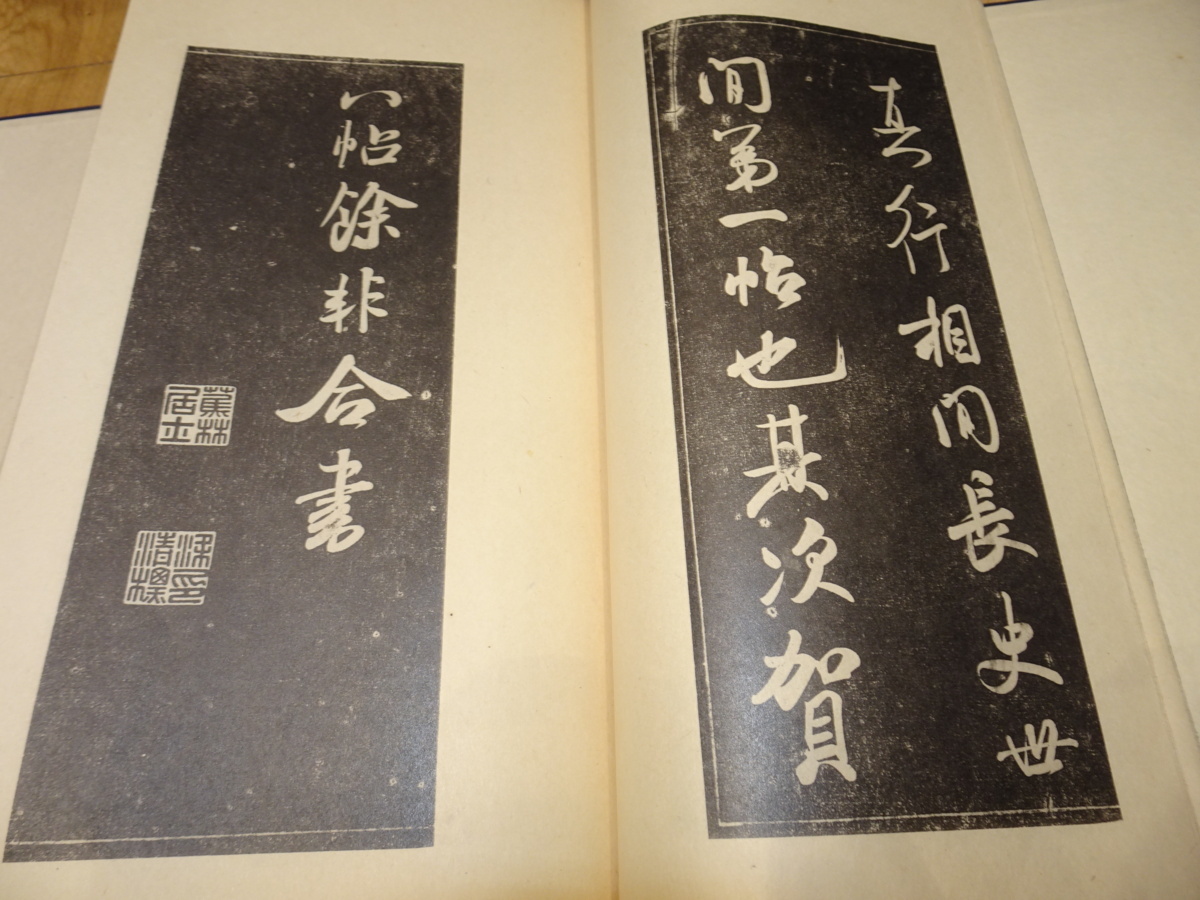 真行相間長史世
間第一帖也其次賀
八帖餘非合書
蕉林居士
梁清標印